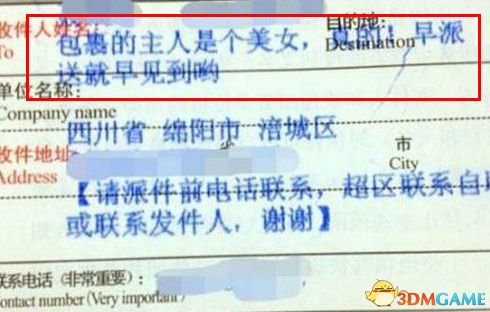 收件人姓名: 目的地:
To Destination
包裹的主人是个美女，真的！早派
送就早见到哟
单位名称:
Company name
四川省 绵阳市 涪城区
收件地址: 市
Address City
【请派件前电话联系，超区联系自取
或联系发件人，谢谢】
联系电话（非常重要）:
Contact number (Very important)
3DMGAME